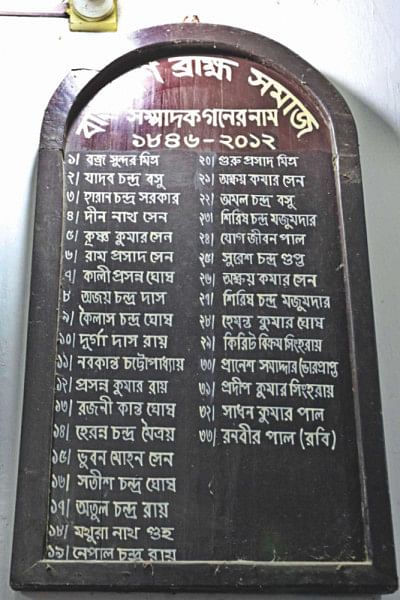 ব্রাহ্ম সমাজ
সম্পাদকগনের নাম
১৮৪৬-২০১২
১। ব্রজ সুন্দর মিত্র
২। যাদব চন্দ্র বসু
৩। হারান চন্দ্র সরকার
৪। দীন নাথ সেন
৫। কৃষ্ণ কুমার সেন
৬। রাম প্রসাদ সেন
৭। কালী প্রসন্ন ঘোষ
৮। অজয় চন্দ্র দাস
৯। কৈলাস চন্দ্র ঘোষ
১০। দুর্গা দাস রায়
১১। নবকান্ত চট্টোপাধ্যায়
১২। প্রসন্ন কুমার রায়
১৩। রজনী কান্ত ঘোষ
১৪। হেরন্ব চন্দ্র মৈত্রয়
১৫। ভুবন মোহন সেন
১৬। সতীশ চন্দ্র ঘোষ
১৭। অতুল চন্দ্র রায়
১৮। মথুরা নাথ গুহ
১৯। নেপাল চন্দ্র রায়
২০। গুরু প্রসাদ মিত্র
২১। অক্ষয় কুমার সেন
২২। অমল চন্দ্র বসু
২৩। শিরিষ চন্দ্র মজুমদার
২৪। যোগ জীবন পাল
২৫। সুরেশ চন্দ্র গুপ্ত
২৬। অক্ষয় কুমার সেন
২৭। শিরিষ চন্দ্র মজুমদার
২৮। হেমন্ত কুমার ঘোষ
২৯। কিরিট বিক্রম সিংহরায়
৩০। প্রানেশ সমাদ্দার (ভারপ্রাপ্ত
৩১। প্রদীপ কুমার সিংহরায়
৩২। সাধন কুমার পাল
৩৩। রনবীর পাল (রবি)